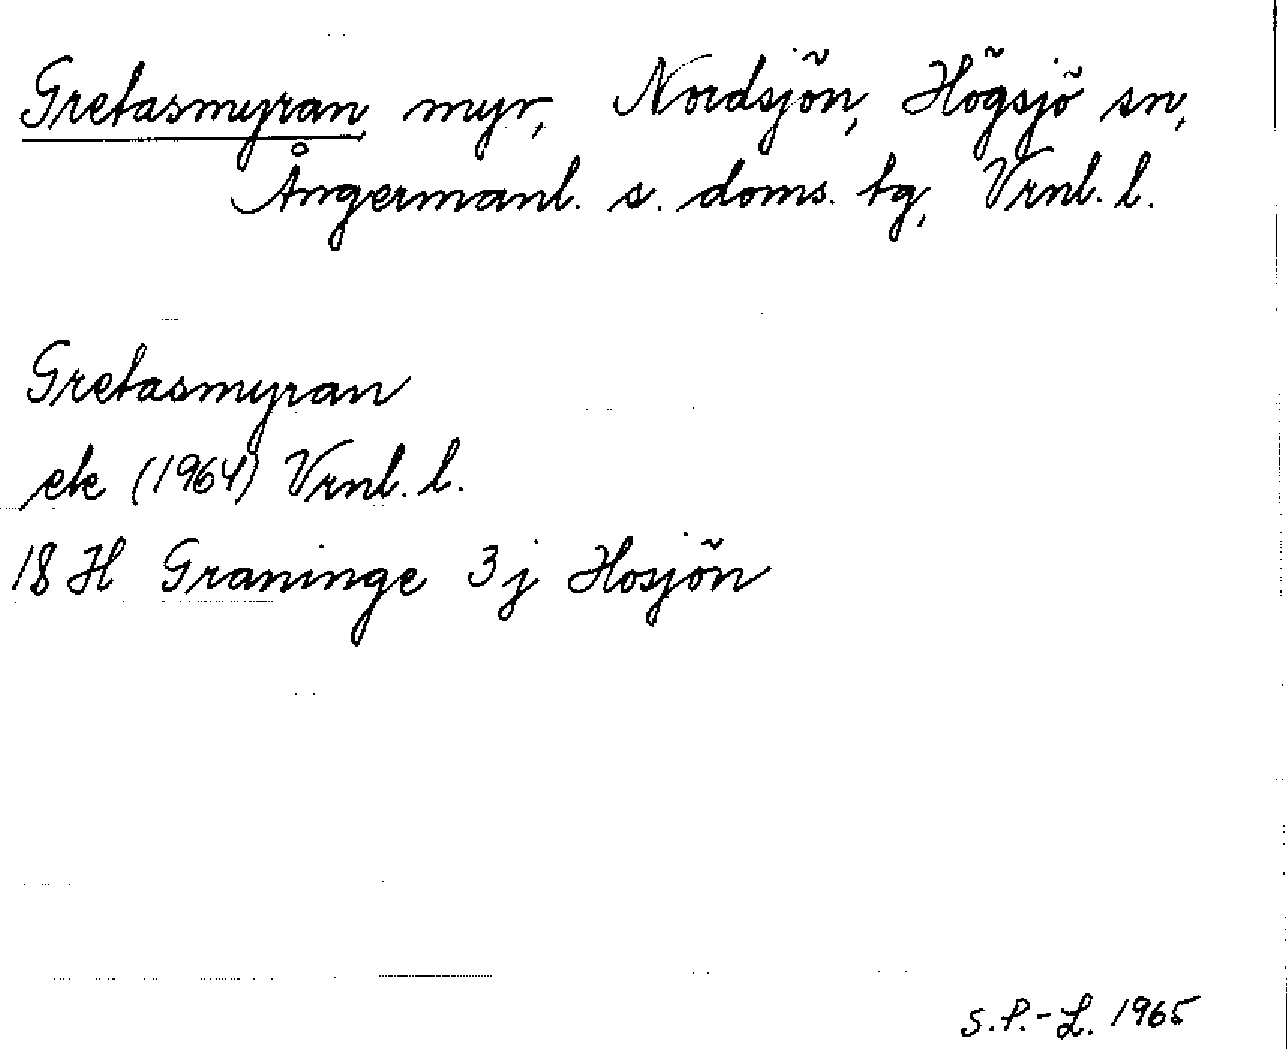 Gretasmyran myr, Nordsjön, Högsjö sn,
Ångermanl. s. doms. tg, Vrnl. l.
Gretasmyran
ek (1964) Vrnl. l.
18 H Graninge 3 j Hosjön
S.P.-L. 1965